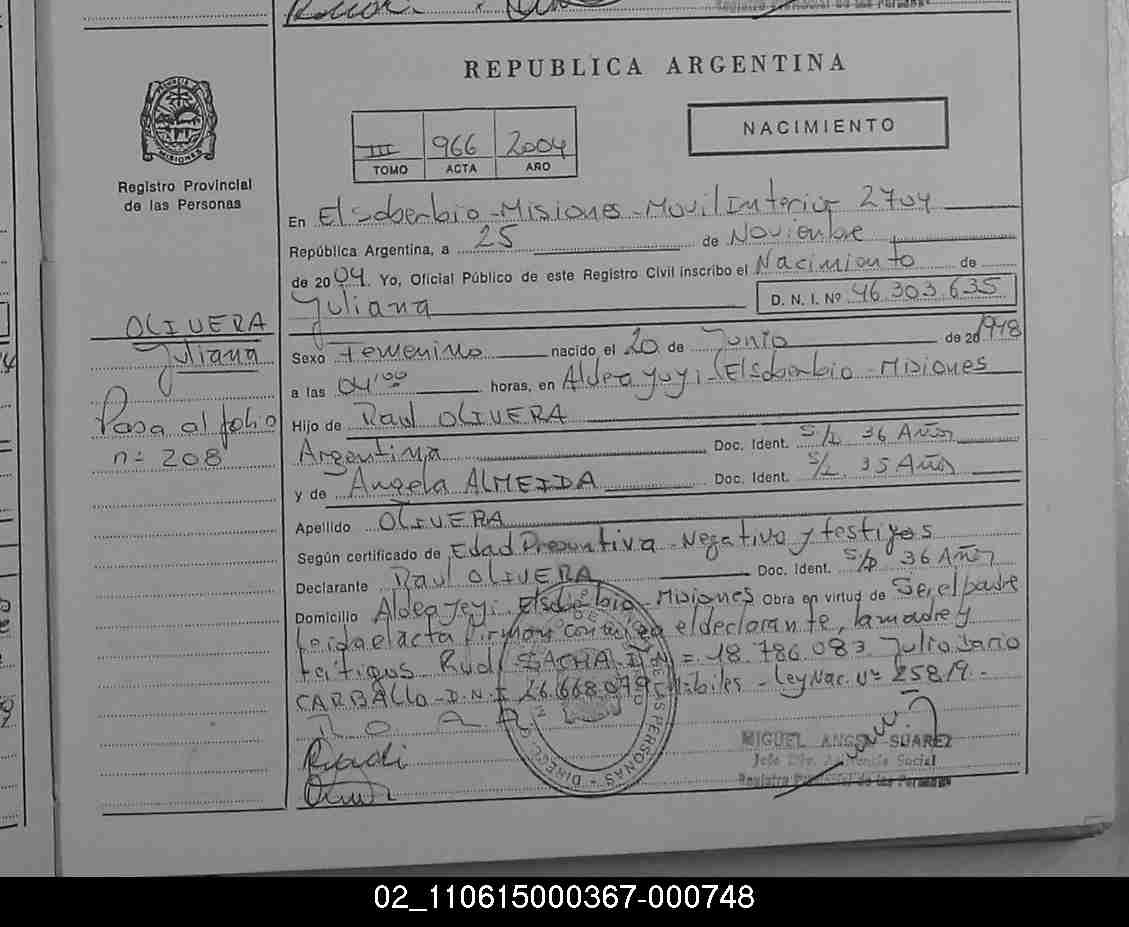 REPUBLICA ARGENTINA
NACIMIENTO
III 966 2004
TOMO ACTA AÑO
PROVINCIA DE MISIONES
Registro Provincial
de las Personas
En El Soberbio - Misiones - Movil Interior 2704
República Argentina, a 25 de Noviembre
de 2004. Yo, Oficial Público de este Registro Civil inscribo el Nacimiento de
Juliana D. N. I. Nº 46.303.635
OLIVERA
Juliana
Pasa al folio
nº 208
Sexo Femenino nacido el 20 de Junio de 20 1998
a las 04'00 horas, en Aldea Yeyi - El Soberbio - Misiones
Hijo de Raul OLIVERA
Argentina Doc. Ident. S/L 36 Años
y de Angela ALMEIDA Doc. Ident. S/L 35 Años
Apellido OLIVERA
Según certificado de Edad Presuntiva - Negativo y testigos
Declarante Raul OLIVERA Doc. Ident. S/D 36 Años
Domicilio Aldea Yeyi El Soberbio - Misiones Obra en virtud de Ser el padre
Leida el acta firman el declarante, la madre y
testigos Rudi SACHA D N = 18.786.083 Julio Dario
CARBALLO - D.N.I 26.668.079 - Ley Nac. Nº 25819.-
Rudi
MIGUEL ANGEL SUAREZ
Jefe Social
Registro Provincial de las Personas
02_110615000367-000748